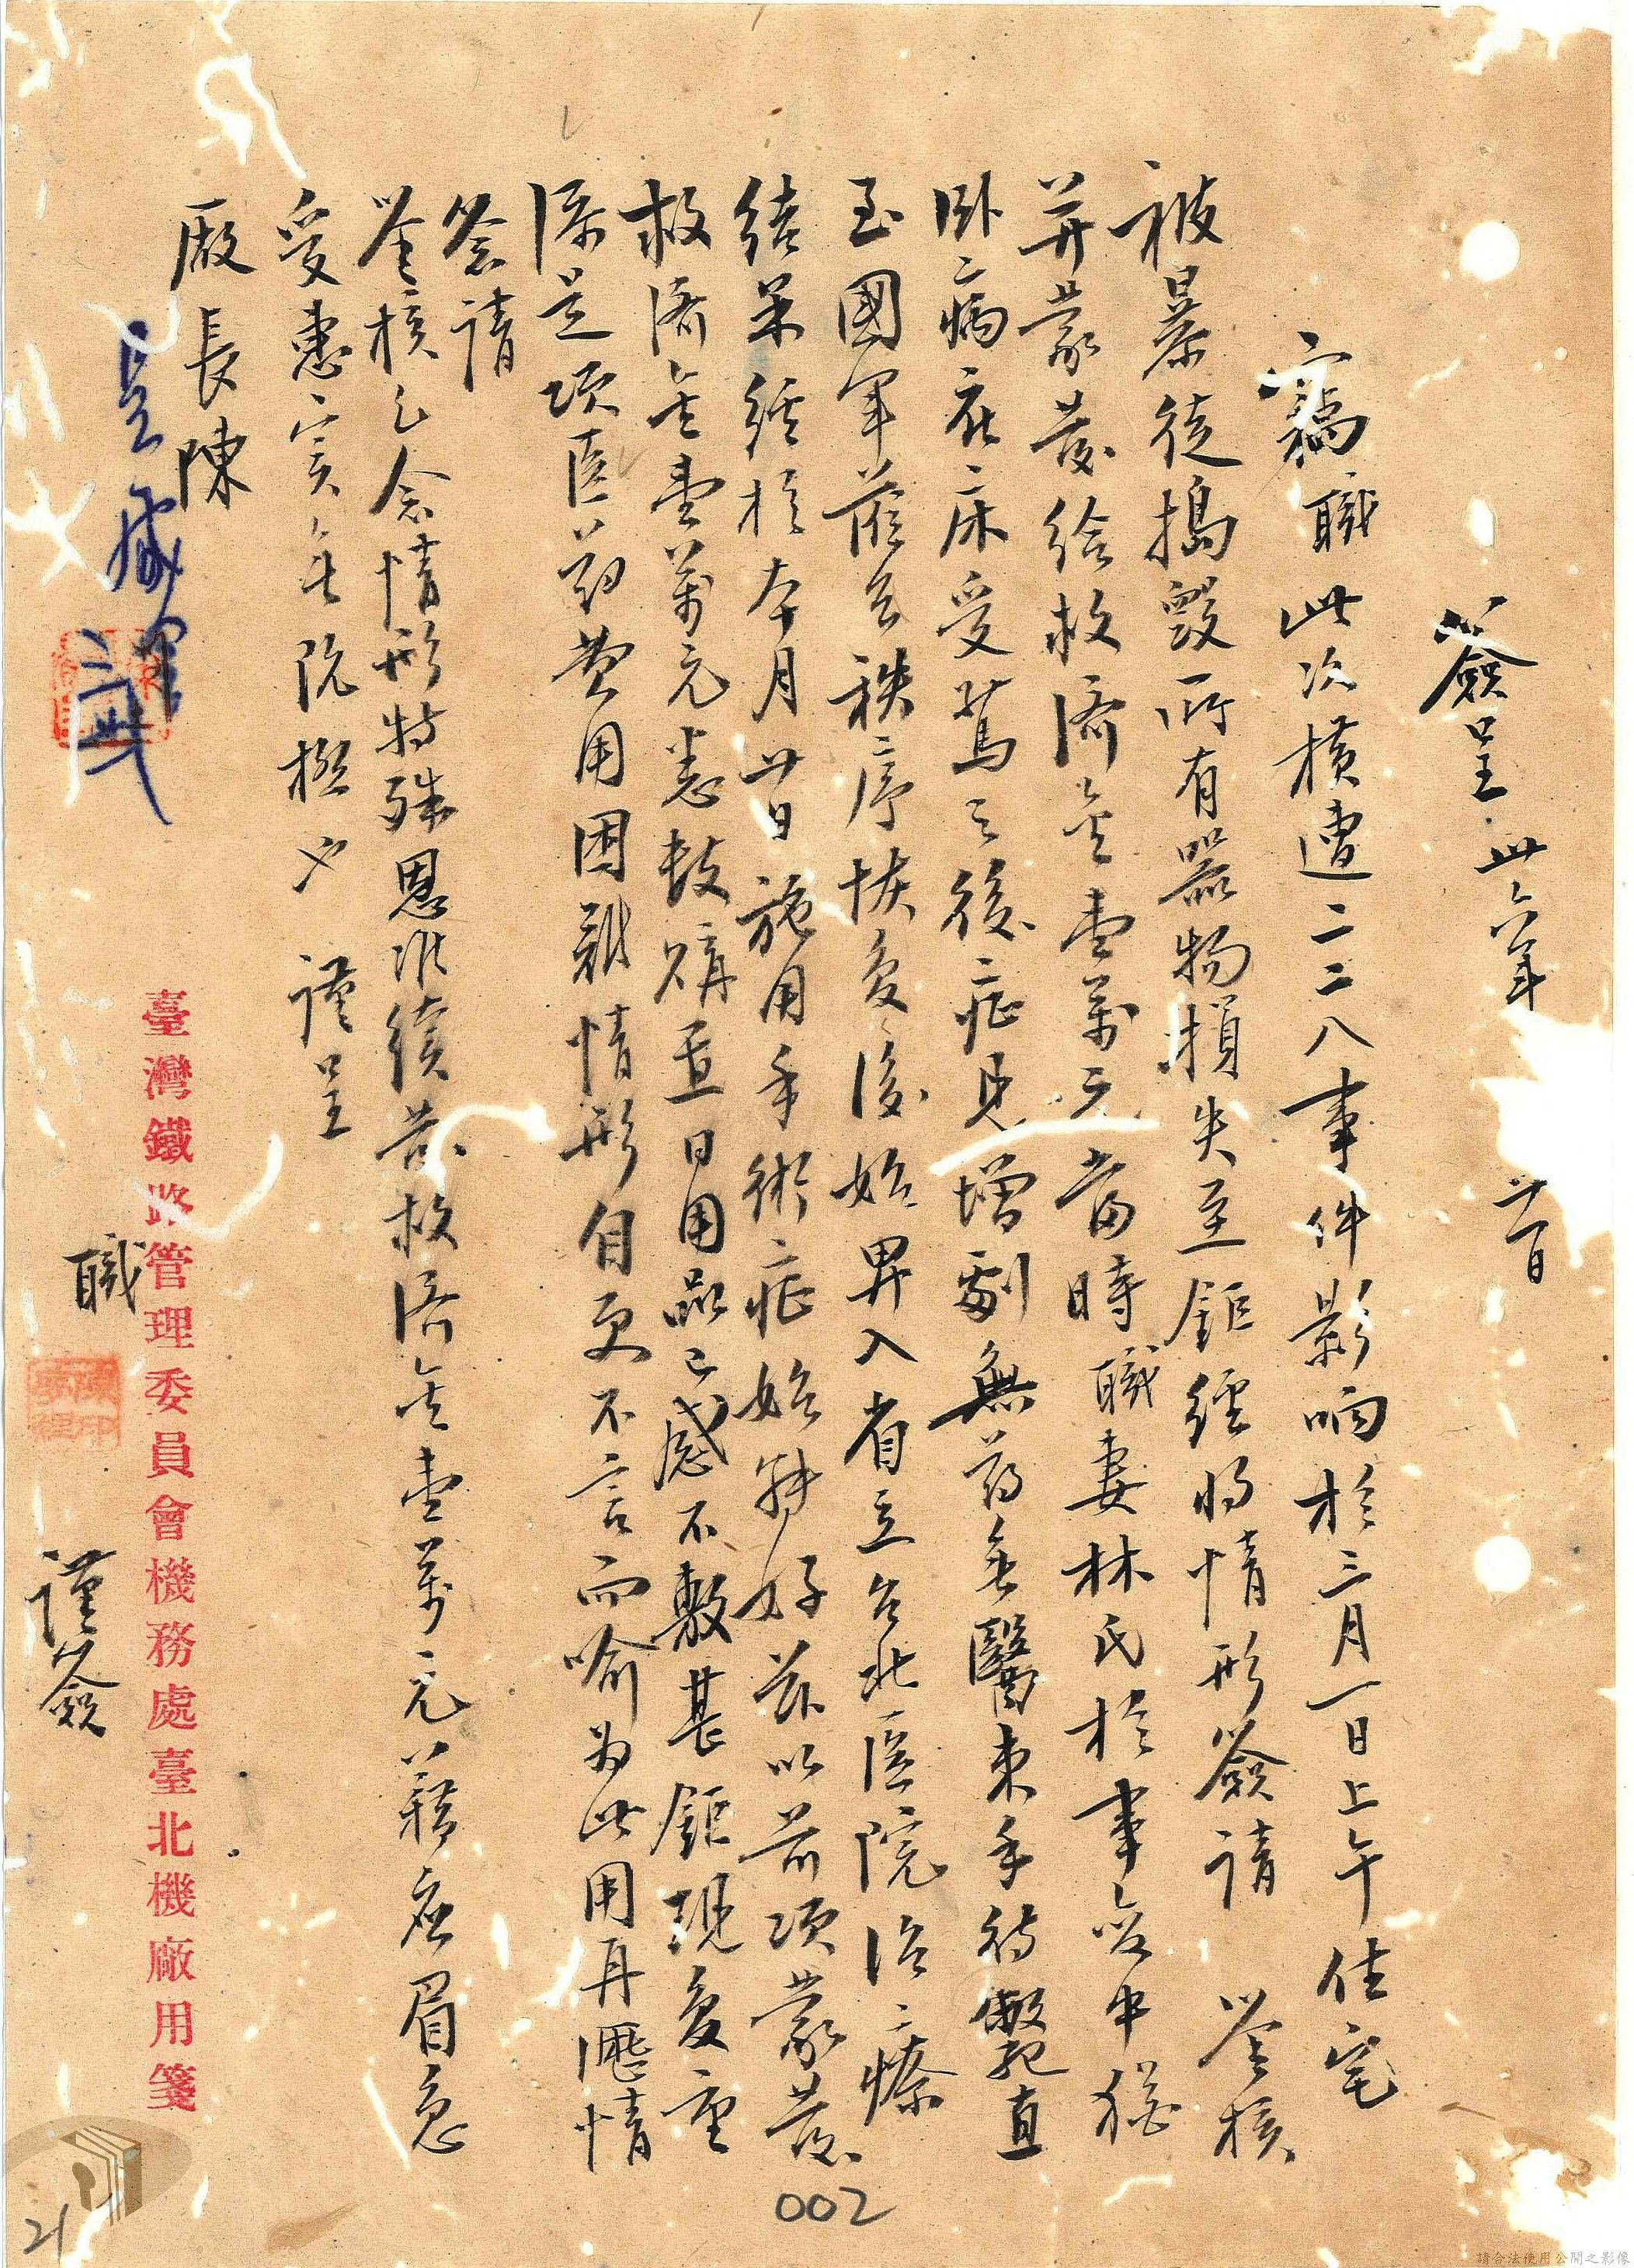 簽呈 卅六年
竊職此次橫遭二二八事件影响於三月一日上午住宅
被暴徒搗毀所有器物損失至鉅經將情形簽請 鉴核
并蒙發給救濟金壹萬元當時職妻林氏於事變中猶
臥病在床受驚之後症見增劇無葯無醫束手待斃直
至國軍蒞台秩序恢复後始畀入省立台北医院治療
結果經於本月廿日施用手術症始転好茲以前項蒙發
救濟金壹萬元悉数購置日用品已感不敷甚鉅現复重
添是項医葯費用困難情形自更不言而喻为此用再瀝情
簽請
鉴核乞念情形特殊恩准續发救济金壹萬元藉应眉急
受惠實無阮極 謹呈
廠長陳
職 謹簽
臺灣鐵路管理委員會機務處臺北機廠用箋
002
21
請合法使用公開之影像